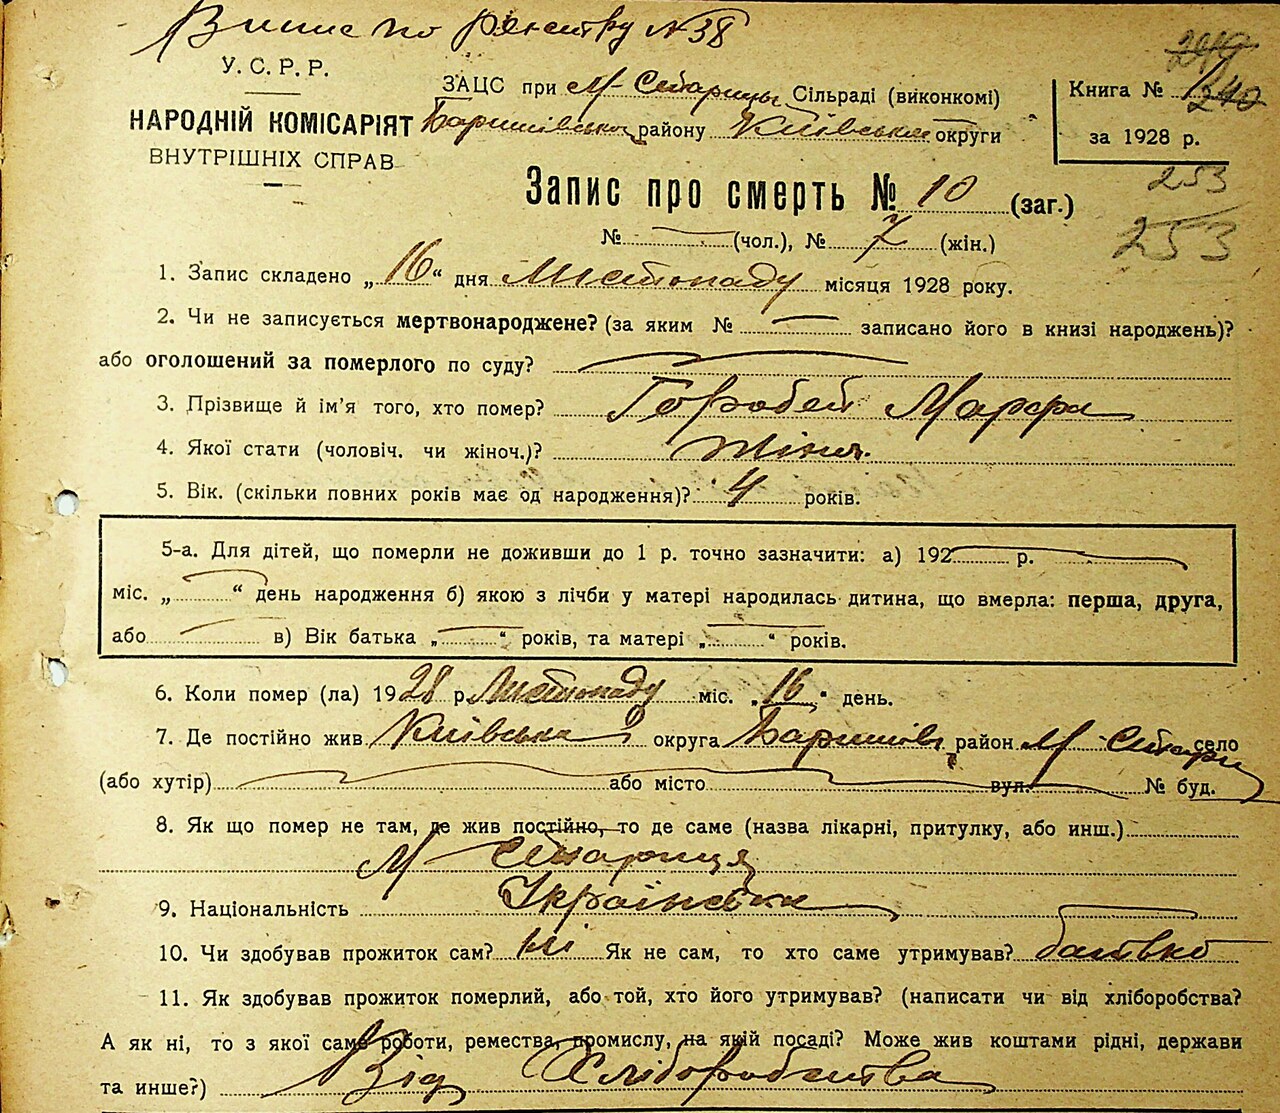 Випис по реєстру №38
У. С. Р. Р.
НАРОДНІЙ КОМІСАРІЯТ
ВНУТРІШНІХ СПРАВ
ЗАЦС при М-Старицы Сільраді (виконкомі)
Баришівському району Київськой округи
Книга № 1
240
за 1928 р.
253
253
Запис про смерть № 10 (заг.)
№ — (чол.), № 7 (жін.)
1. Запис складено „16“ дня Листопаду місяця 1928 року.
2. Чи не записується мертвонароджене? (за яким № — записано його в книзі народжень)?
або оголошений за померлого по суду? —
3. Прізвище й ім'я того, хто помер? Горобей Марфа
4. Якої стати (чоловіч. чи жіноч.)? жіноч.
5. Вік. (скільки повних років має од народження)? 4 років.
5-а. Для дітей, що померли не доживши до 1 р. точно зазначити: а) 192 р.
міс. „ “ день народження б) якою з лічби у матері народилась дитина, що вмерла: перша, друга,
або в) Вік батька „ “ років, та матері „ “ років.
6. Коли помер (ла) 1928 р. Листопаду міс. „16“ день.
7. Де постійно жив Київська округа Баришів район М Стариц село
(або хутір) або місто вул. № буд.
8. Як що помер не там, де жив постійно, то де саме (назва лікарні, притулку, або инш.)
М Стариця
9. Національність Українська
10. Чи здобував прожиток сам? ні Як не сам, то хто саме утримував? батько
11. Як здобував прожиток померлий, або той, хто його утримував? (написати чи від хліборобства?
А як ні, то з якої саме роботи, ремества, промислу, на якій посаді? Може жив коштами рідні, держави
та инше?) Від Хліборобства